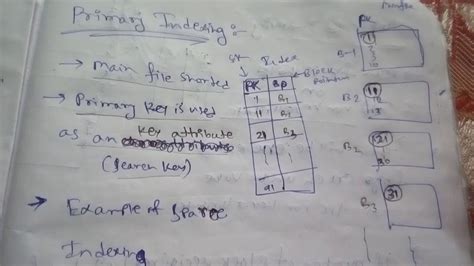 Primary Indexing :-
→ Main file shorted
→ Primary key is used
as an key attribute
(search key)
→ Example of sparce
Indexing
SK Index
Block
Pointer
PK BP
1 B1
11 B2
21 B3
91
PK
B-1 1
B2 11
B3 21
30
31